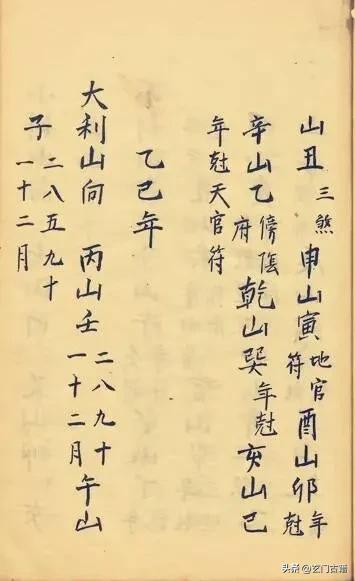 山丑三煞申山寅地官符酉山卯年尅
辛山乙傍陰府乾山巽年尅亥山巳
年尅天官符
乙巳年
大利山向丙山壬二八九十一十二月午山
子二八五九十一十二月
头条@玄门古籍